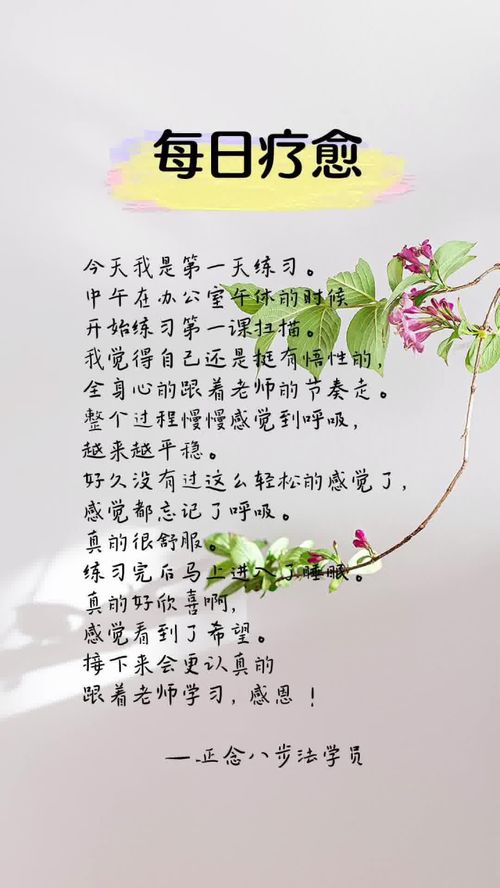 每日疗愈
今天我是第一天练习。
中午在办公室午休的时候
开始练习第一课扫描。
我觉得自己还是挺有悟性的,
全身心的跟着老师的节奏走。
整个过程慢慢感觉到呼吸,
越来越平稳。
好久没有过这么轻松的感觉了,
感觉都忘记了呼吸。
真的很舒服。
练习完后马上进入了睡眠。
真的好欣喜啊,
感觉看到了希望。
接下来会更认真的
跟着老师学习,感恩!
——正念八步法学员